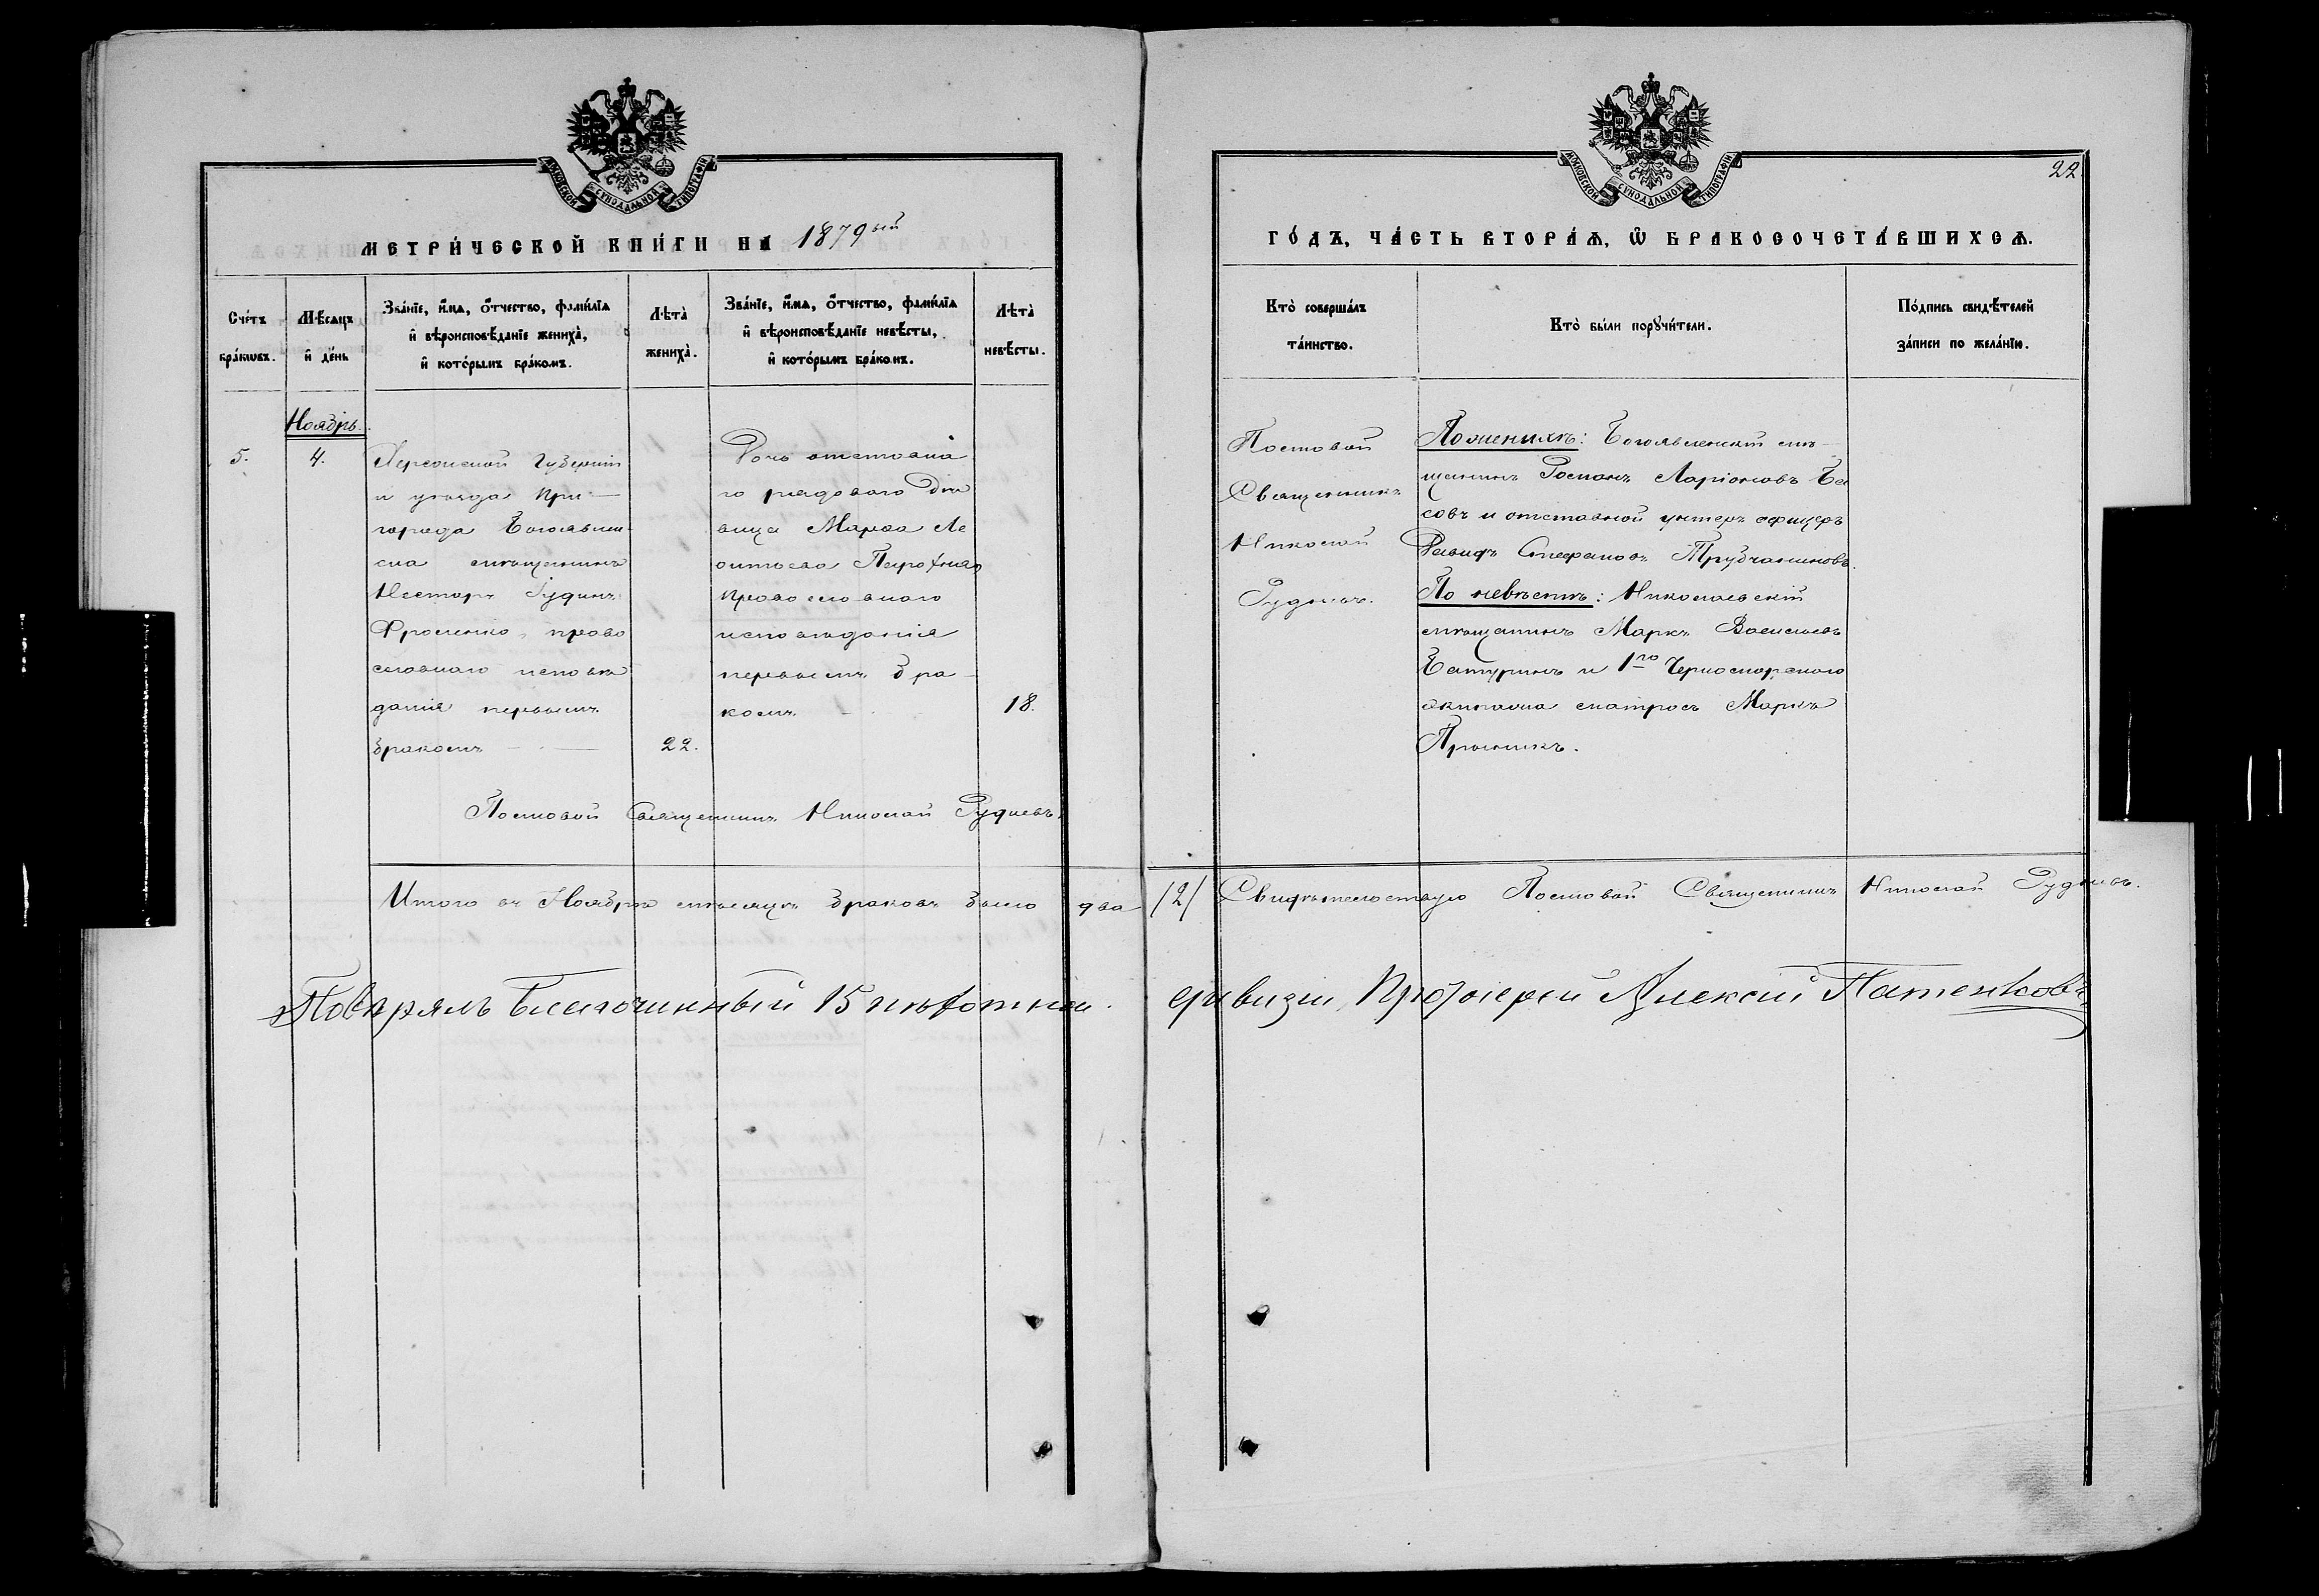 МОСКОВСКОЙ СѴНОДАЛЬНОЙ ТИПОГРАФІИ
МЕТРИ́ЧЕСКОЙ КНИ́ГИ НА 1879ый
Сче́тъ бра́кωвъ.
Мѣ́сяцъ и҆ де́нь
Зва́нїе, и҆́мѧ, ѻ҆́тчество, фами́лїѧ
и҆ вѣроисповѣ́данїе жениха̀,
и҆ кото́рымъ бра́комъ.
Лѣта̀ жениха̀.
Зва́нїе, и҆́мѧ, ѻ҆́тчество, фами́лїѧ
и҆ вѣроисповѣ́данїе невѣ́сты,
и҆ кото́рымъ бра́комъ.
Лѣта̀ невѣ́сты.
Ноябрь.
5.
4.
Херсонской Губерніи
и уѣзда При—
города Богоявлен-
ска мѣщанинъ
Несторъ Іудинъ
Фроленко, право
славнаго исповѣ
данія первымъ
бракомъ
22.
Дочь отставна
го рядоваго Дѣ
вица Марѳа Ле
онтьева
православнаго
исповѣданія
первымъ бра-
комъ
18.
Постовой Священникъ Николай Рудневъ.
Итого въ Ноябрѣ мѣсяцѣ браковъ было два
Повѣрялъ Благочинный 15 пѣхотной
МОСКОВСКОЙ СѴНОДАЛЬНОЙ ТИПОГРАФІИ
22.
ГО́ДЪ, ЧА́СТЬ ВТОРА́Ѧ, Ѡ҆ БРАКОСОЧЕТА́ВШИХСѦ.
Кто̀ соверша́лъ
та́инство.
Кто̀ бы́ли порꙋчи́тели.
По́дпись свидѣ́телей
за́писи по жела́нїю.
Постовой
Священникъ
Николай
Рудневъ.
По женихѣ: Богоявленскій мѣ—
щанинъ Романъ Ларіоновъ Бѣ
совъ и отставной унтеръ офицеръ
Давидъ Стефановъ Трубчаниновъ.
По невѣстѣ: Николаевскій
мѣщанинъ Маркъ Васильевъ
Батуринъ и 1го Черноморскаго
экипажа матросъ Маркъ
(2) Свидѣтельствую Постовой Священникъ Николай Рудневъ.
дивизіи, Протоіерей Алексій Патенковъ